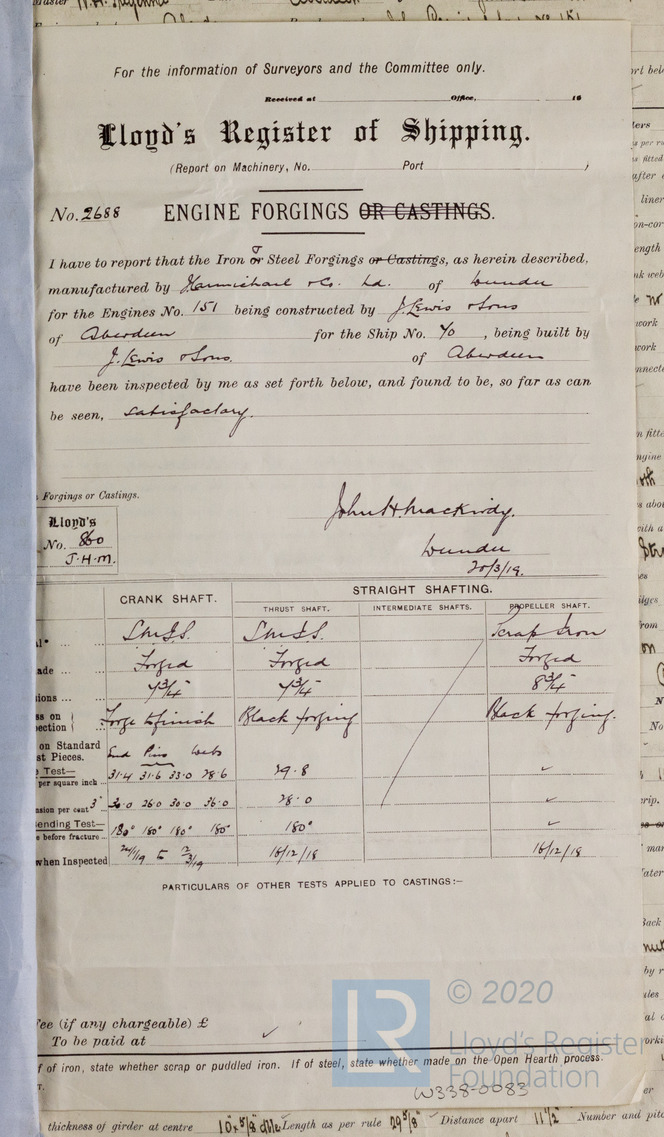 For the information of Surveyors and the Committee only.
Received at Office, 19
Lloyd's Register of Shipping.
(Report on Machinery, No. Port )
No. 2688 ENGINE FORGINGS OR CASTINGS.
I have to report that the Iron or Steel Forgings or Castings, as herein described,
manufactured by & Co. Ld. of Dundee
for the Engines No. 151 being constructed by J. Lewis & Sons
of Aberdeen for the Ship No. 70, being built by
J. Lewis & Sons. of Aberdeen
have been inspected by me as set forth below, and found to be, so far as can
be seen, satisfactory.
Forgings or Castings.
Lloyd's
No. 860
J.H.M.
John H. Mackirdy.
Dundee
20/3/19.
CRANK SHAFT. STRAIGHT SHAFTING.
THRUST SHAFT. INTERMEDIATE SHAFTS. PROPELLER SHAFT.
Scrap Iron
Forged Forged Forged
7 3/4" 7 3/4" 8 3/4"
Forge & finish Black forging Black forging.
on Standard
st Pieces. End Pins Webs
Test—
per square inch 31.4 31.6 33.0 28.6 29.8 ✓
nsion per cent 3" 30.0 26.0 30.0 36.0 28.0 ✓
ending Test—
before fracture 180° 180° 180° 180° 180° ✓
when Inspected 16/12/18 16/12/18
PARTICULARS OF OTHER TESTS APPLIED TO CASTINGS:—
Fee (if any chargeable) £
To be paid at ✓
f of iron, state whether scrap or puddled iron. If of steel, state whether made on the Open Hearth process.
© 2020
LR
Lloyd's Register
Foundation
W338-0083
thickness of girder at centre 10" x 5/8" dble Length as per rule 29 5/8" Distance apart 11 1/2" Number and pit